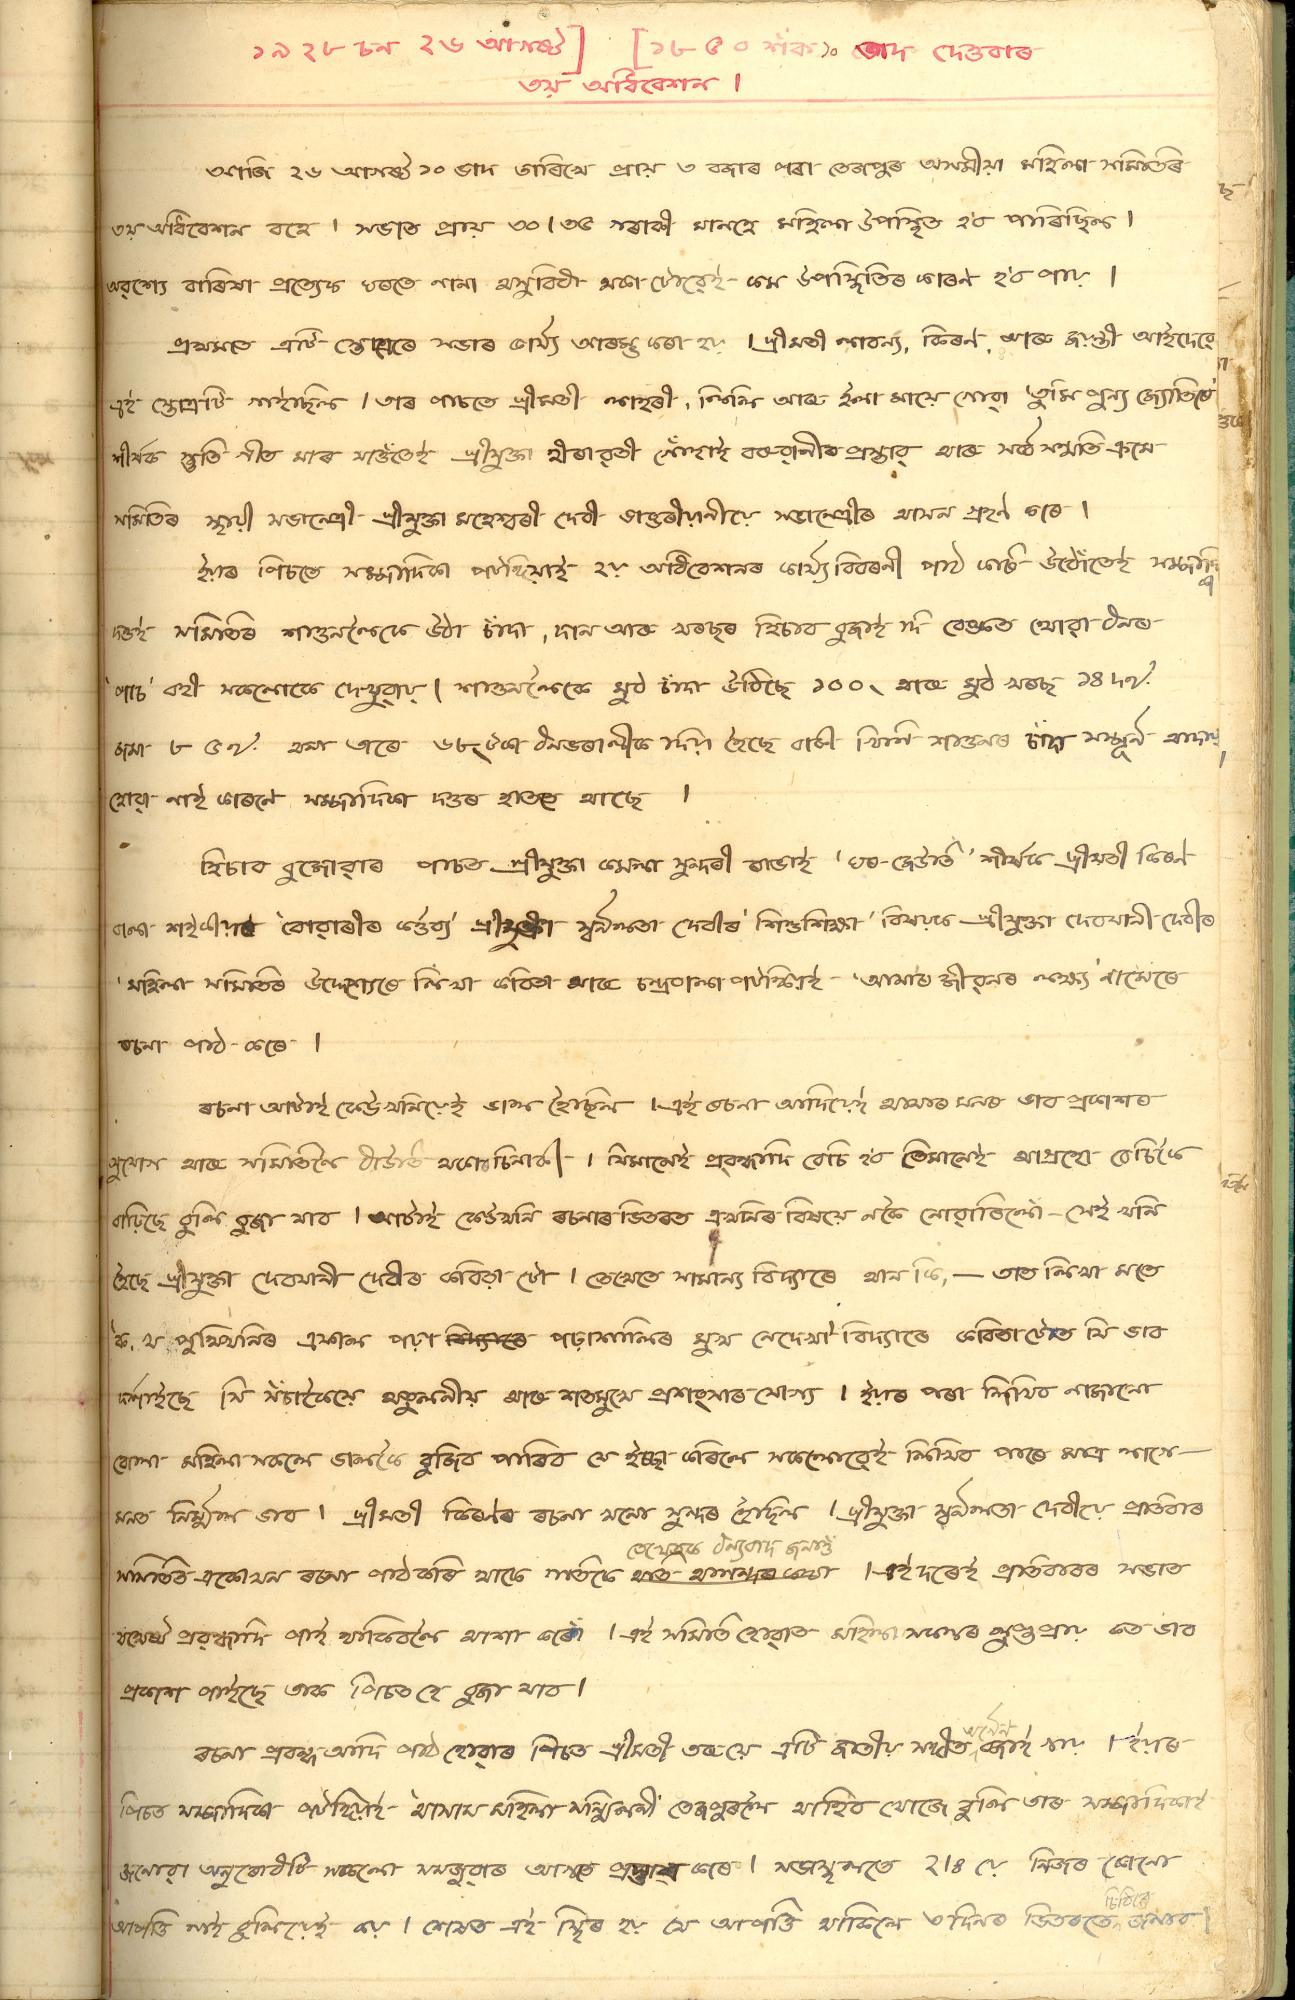 ১৯২৮ চন ২৬ আগষ্ট] [১৮৫০ শঁক ১০ ভাদ দেওবাৰ
৩য় অধিবেশন ।
আজি ২৬ আগষ্ট ১০ ভাদ তাৰিখে প্ৰায় ৩ বজাৰ পৰা তেজপুৰ অসমীয়া মহিলা সমিতিৰ
৩য় অধিবেশন বহে । সভাত প্ৰায় ৩০।৩৫ গৰাকী মানহে মহিলা উপস্থিত হব পাৰিছিল ।
অৱশ্যে বাৰিষা প্ৰত্যেক ঘৰতে নানা অসুবিধা থকাটোৱেই কম উপস্থিতিৰ কাৰণ হব পায় ।
প্ৰথমতে এটি স্তোত্ৰৰে সভাৰ কাৰ্য্য আৰম্ভ কৰা হয় । শ্ৰীমতী লাবন্য, কিৰণ, আৰু জয়ন্তী আইদেৱে
এই স্তোত্ৰটি গাইছিল । তাৰ পাচতে শ্ৰীমতী লাহৰী, লিলি আৰু ইলা মায়ে গোৱা 'তুমি পুন্য জ্যোতিৰে'
শীৰ্ষক স্তুতি গীত মাৰ যাওঁতেই শ্ৰীযুক্তা হীৰাৱতী গোঁহাই বৰুৱানীৰ প্ৰস্তাৱ আৰু সৰ্ব্ব সন্মতি ক্ৰমে
সমিতিৰ স্থায়ী সভানেত্ৰী শ্ৰীযুক্তা মহেশ্বৰী দেবী ডাক্তৰীয়ানীয়ে সভানেত্ৰীৰ আসন গ্ৰহণ কৰে ।
ইয়াৰ পিচতে সম্পাদিকা পাটগিৰিয়াই ২য় অধিবেশনৰ কাৰ্য্য বিবৰনী পাঠ কৰি উঠোঁতেই সম্পাদিকা
দত্তই সমিতিৰ শাওনলৈকে উঠা চাঁদা, দান আৰু খৰছৰ হিচাব বুজাই দি বেঙ্কত থোৱা ধনৰ
'পাচ' বহী সকলোকে দেখুৱায় । শাওনলৈকে মুঠ চাঁদা উঠিছে ১০০৲ আৰু মুঠ খৰছ ১৪
জমা ৮৫ থকা তাৰে ৬৮৲ টকা ধনভৰালীত দিয়া হৈছে বাকী খিনি শাওনৰ চাঁদা সম্পূৰ্ন আদায়
হোৱা নাই কাৰনে সম্পাদিকা দত্তৰ হাততে আছে ।
হিচাব বুজোৱাৰ পাচত শ্ৰীযুক্তা কমলা সুন্দৰী ৰাভাই 'ঘৰ-জেউতি' শীৰ্ষক শ্ৰীমতী কিৰণ
বালা শইকীয়াৰ 'বোৱাৰীৰ কৰ্ত্তব্য' শ্ৰীযুক্তা স্বৰ্নলতা দেবীৰ 'শিশুশিক্ষা' বিষয়কে শ্ৰীযুক্তা দেবযানী দেবীৰ
'মহিলা সমিতিৰ উদ্দেশ্যেৰে লিখা কবিতা আৰু চন্দ্ৰবালা পাটগিৰিয়াই 'আমাৰ জীৱনৰ লক্ষ্য' নামেৰে
ৰচনা পাঠ কৰে ।
ৰচনা আটাই কেউখনিয়েই ভাল হৈছিল । এই ৰচনা আদিয়েই আমাৰ মনৰ ভাব প্ৰকাশৰ
সুযোগ আৰু সমিতিলৈ ধাউতি থকাৰ চিনাকি । যিমানেই প্ৰৱন্ধাদি বেচি হব তিমানেই আগ্ৰহো বেচিকৈ
বাঢ়িছে বুলি বুজা যাব । আটাই কেউখনি ৰচনাৰ ভিতৰত এখনিৰ বিষয়ে নকৈ নোৱাৰিলোঁ — সেই খনি
হৈছে শ্ৰীযুক্তা দেবযানী দেবীৰ কবিতাটো । তেখেতে সামান্য বিদ্যাৰে খান কি, — তাত লিখা মতে
ক, খ পুথিখনিৰ এফাল পঢ়া পঢ়াশালিৰ মুখ নেদেখা বিদ্যাৰে কবিতাটোত যি ভাব
দৰ্শাইছে সি সঁচাকৈয়ে অতুলনীয় আৰু শতমুখে প্ৰশংসাৰ যোগ্য । ইয়াৰ পৰা লিখিব নাজানো
বোলা মহিলা সকলে ভালকৈ বুজিব পাৰিব যে ইচ্ছা কৰিলে সকলোৱেই লিখিব পাৰে মাত্ৰ লাগে —
মনত নিৰ্ম্মল ভাব । শ্ৰীমতী কিৰণৰ ৰচনা খনো সুন্দৰ হৈছিল । শ্ৰীযুক্তা স্বৰ্নলতা দেবীয়ে প্ৰতিবাৰ
তেখেতক ধন্যবাদ জনাওঁ
সমিতিত একোখন ৰচনা পাঠ কৰি আছে গতিকে । এই দৰেই প্ৰতিবাৰৰ সভাত
যথেষ্ট প্ৰৱন্ধাদি পাই থাকিবলৈ আশা কৰোঁ । এই সমিতি হোৱাত মহিলা সকলৰ লুপ্তপ্ৰায় কত ভাব
প্ৰকাশ পাইছে তাক পিচত হে বুজা যাব ।
ৰচনা প্ৰবন্ধ আদি পাঠ হোৱাৰ পিচত শ্ৰীমতী তৰুয়ে এটি জাতীয় সঙ্গীত অৰ্গেন বজাই গায় । ইয়াৰ
পিচত সম্পাদিকা পাটগিৰিয়াই আসাম মহিলা সন্মিলনী তেজপুৰলৈ আহিব খোজে বুলি তাৰ সম্পাদিকাই
জনোৱা অনুৰোধটি সকলো সমজুৱাৰ আগত প্ৰস্তাৱ কৰে । সভাস্থলতে ২।৪ য়ে নিজৰ কোনো
আপত্তি নাই বুলিয়েই কয় । শেষত এই স্থিৰ হয় যে আপত্তি থাকিলে ৩ দিনৰ ভিতৰতে চিঠিৰে জনাব ।